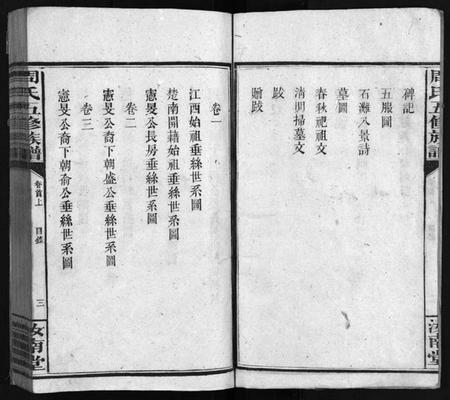 周氏五修族譜
汝南堂
碑記
五服圖
石灘八景詩
墓圖
春秋祀祖文
清明掃墓文
跋
贈跋
卷一
江西始祖垂絲世系圖
楚南開籍始祖垂絲世系圖
憲旻公長房垂絲世系圖
卷二
憲旻公裔下朝盛公垂絲世系圖
卷三
憲旻公裔下朝俞公垂絲世系圖
周氏五修族譜
卷首上
目錄
三
汝南堂